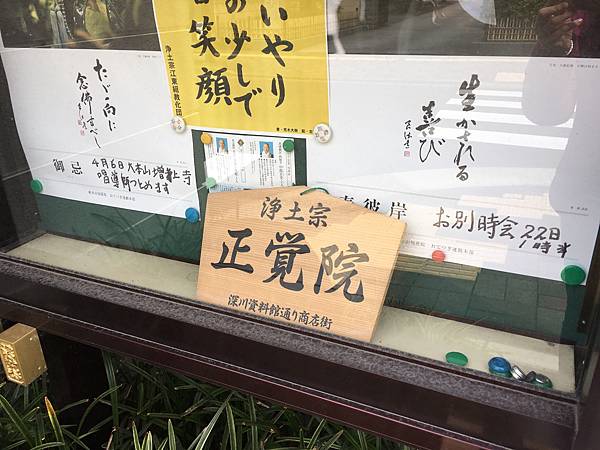 いやり
の少しで
笑顔
浄土宗江東組教化団
たゞ一向に
念佛すべし
御忌
4月6日大本山増上寺
唱導師つとめます
生かされる
喜び
彼岸
お別時会22日
1時半
浄土宗
正覚院
深川資料館通り商店街